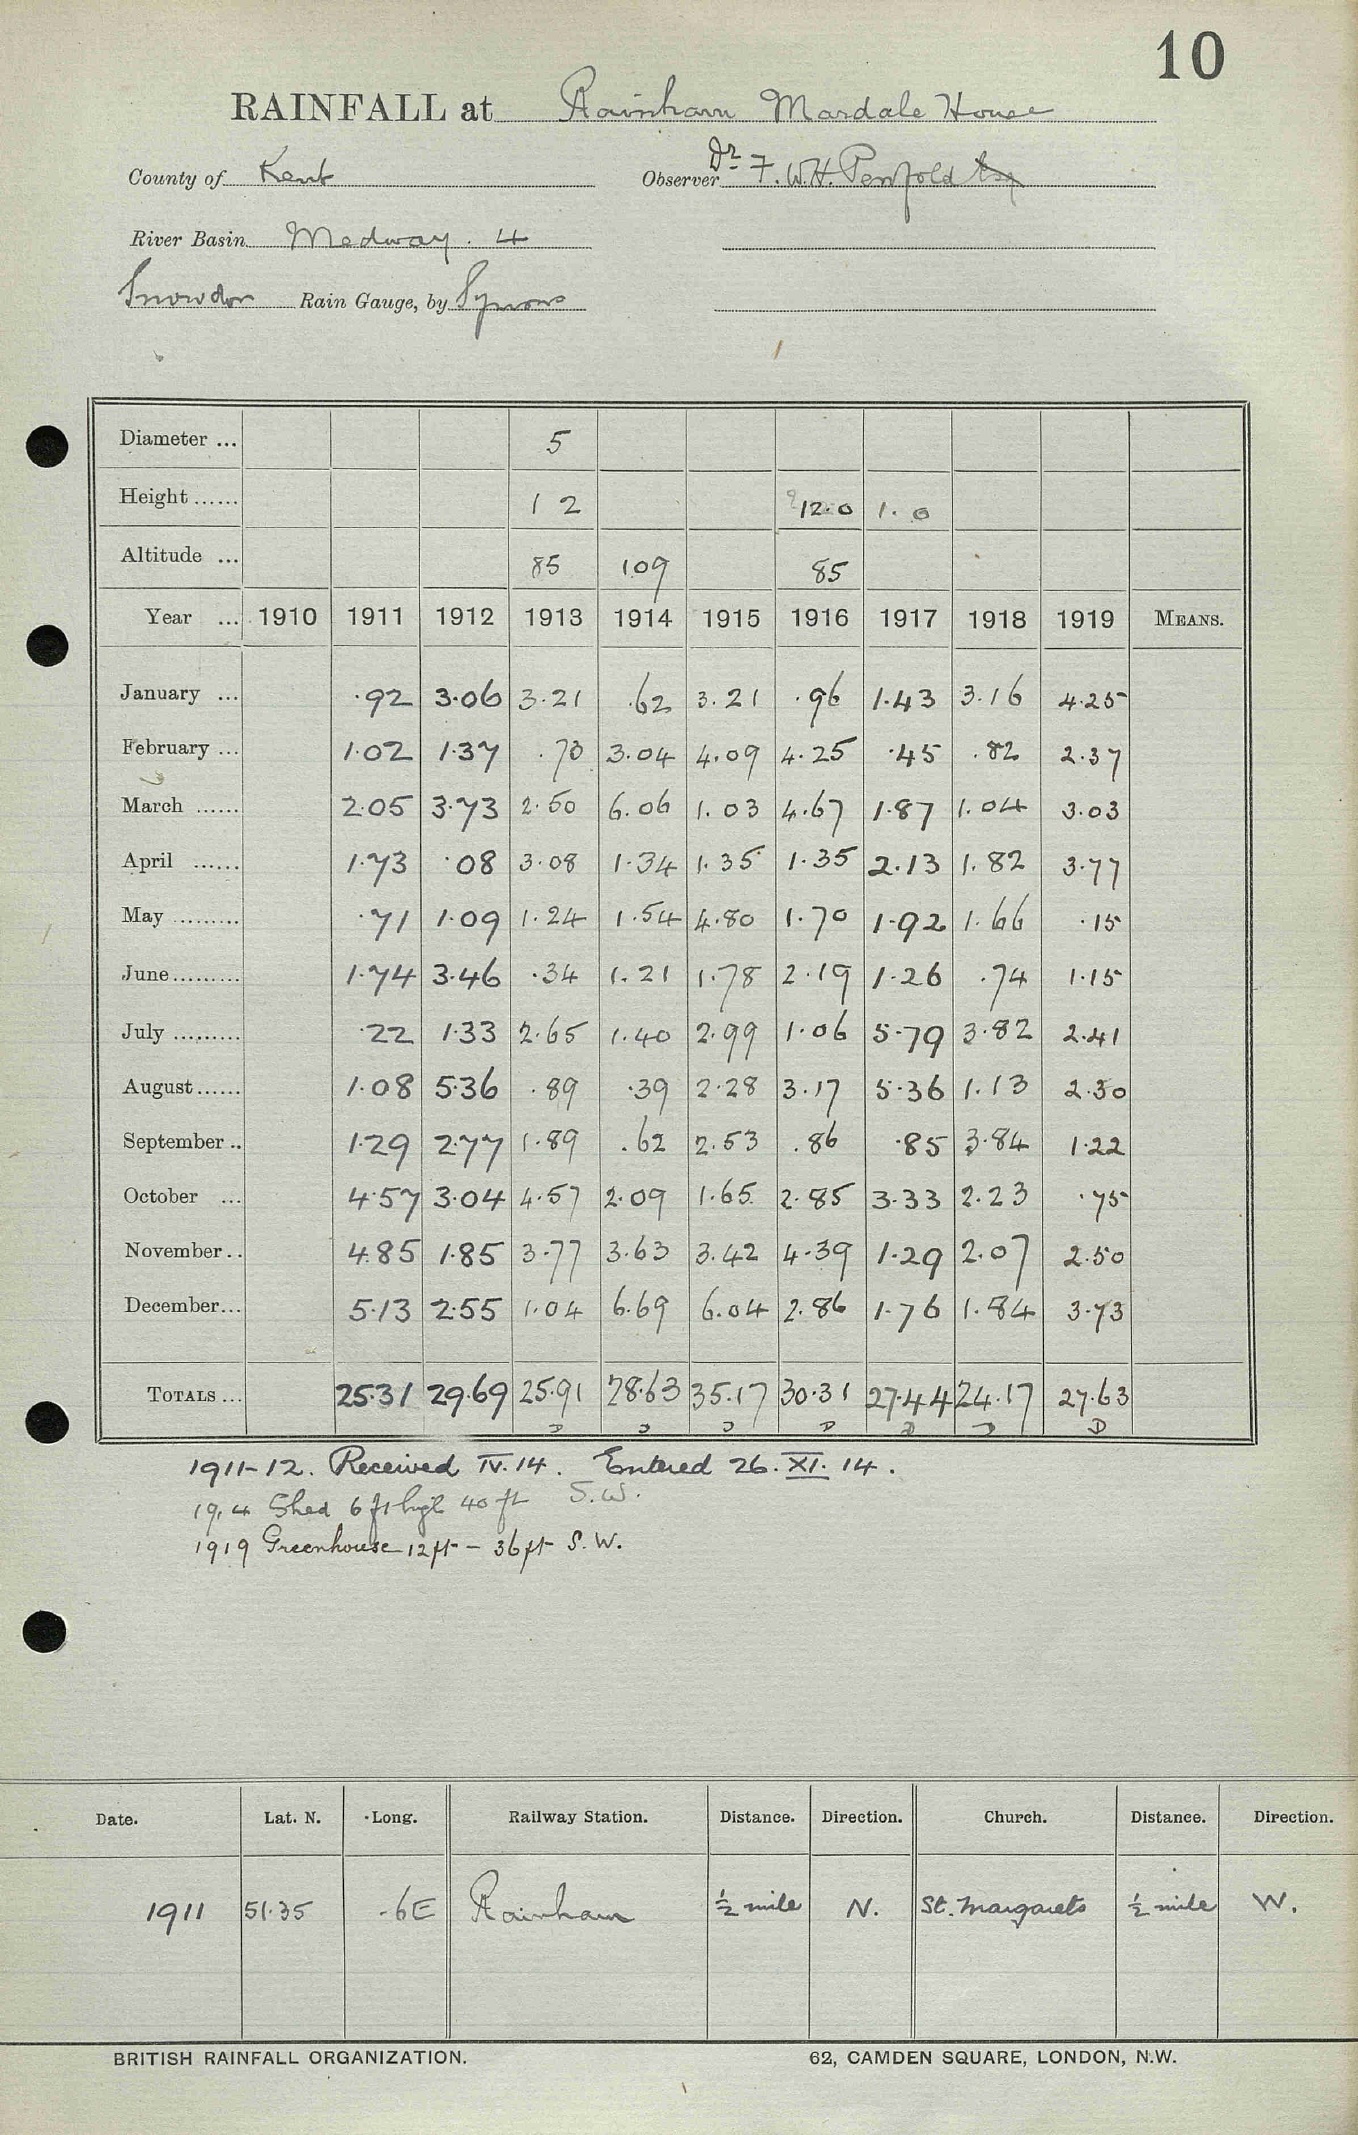 10
RAINFALL at Rainham Mardale House
County of Kent Observer Dr F. W. H. Penfold Esq
River Basin Medway . 4
Snowdon Rain Gauge, by Symons
Diameter ... 5
Height ...... 1 2 ? 12.0 1. 0
Altitude ... 85 109 85
Year ... 1910 1911 1912 1913 1914 1915 1916 1917 1918 1919 MEANS.
January ... .92 3.06 3.21 .62 3.21 .96 1.43 3.16 4.25
February ... 1.02 1.37 .73 3.04 4.09 4.25 .45 .82 2.37
March ...... 2.05 3.73 2.50 6.06 1.03 4.67 1.87 1.04 3.03
April ...... 1.73 .08 3.08 1.34 1.35 1.35 2.13 1.82 3.77
May ......... .71 1.09 1.24 1.54 4.80 1.70 1.92 1.66 .15
June ......... 1.74 3.46 .34 1.21 1.78 2.19 1.26 .74 1.15
July ......... .22 1.33 2.65 1.40 2.99 1.06 5.79 3.82 2.41
August ...... 1.08 5.36 .89 .39 2.28 3.17 5.36 1.13 2.30
September .. 1.29 2.77 1.89 .62 2.53 .86 .85 3.84 1.22
October ... 4.57 3.04 4.57 2.09 1.65 2.85 3.33 2.23 .75
November .. 4.85 1.85 3.77 3.63 3.42 4.39 1.29 2.07 2.50
December ... 5.13 2.55 1.04 6.69 6.04 2.86 1.76 1.84 3.73
TOTALS ... 25.31 29.69 25.91 28.63 35.17 30.31 27.44 24.17 27.63
D D D D D D D
1911-12. Received IV. 14. Entered 26. XI. 14.
1914 Shed 6 ft high 40 ft S.W.
1919 Greenhouse 12 ft - 36 ft S. W.
Date. Lat. N. Long. Railway Station. Distance. Direction. Church. Distance. Direction.
1911 51.35 .6E Rainham ½ mile N. St. Margarets ½ mile W.
BRITISH RAINFALL ORGANIZATION. 62, CAMDEN SQUARE, LONDON, N.W.